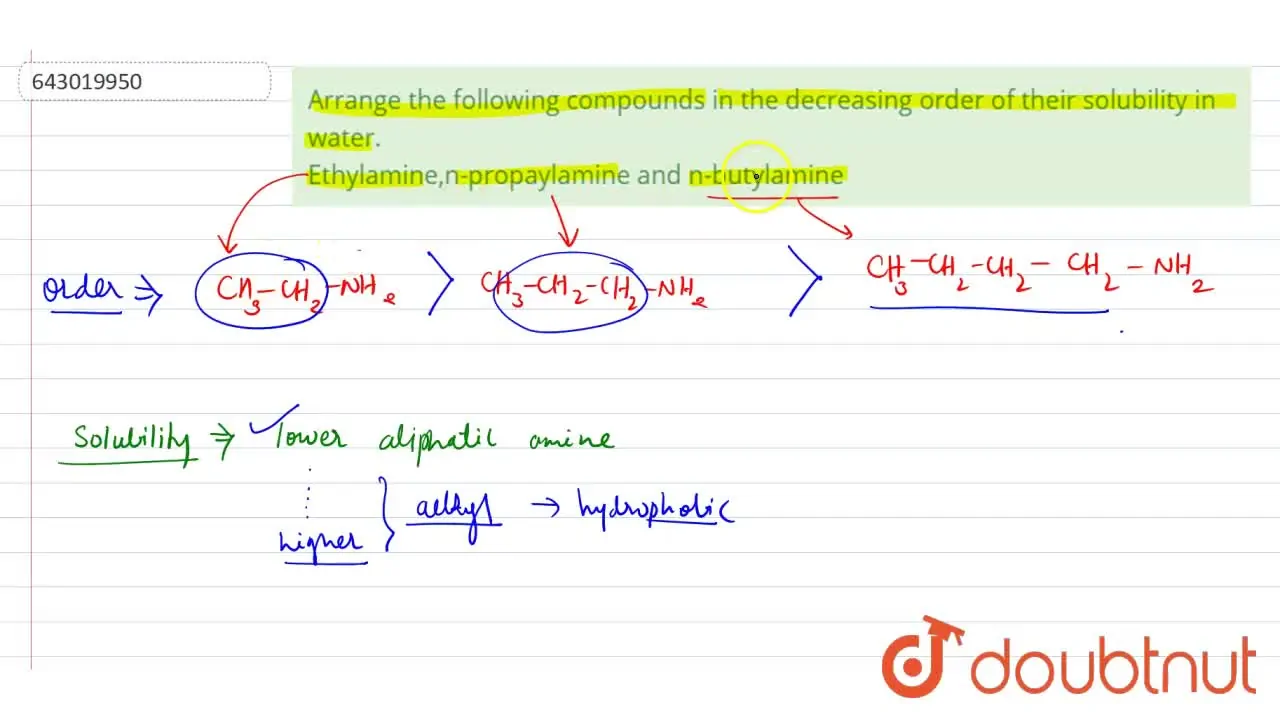 643019950
Arrange the following compounds in the decreasing order of their solubility in
water.
Ethylamine,n-propaylamine and n-butylamine
order ⇒ CH3-CH2-NH2 > CH3-CH2-CH2-NH2 > CH3-CH2-CH2-CH2-NH2
Solubility ⇒ ✓lower aliphatic amine
higher } alkyl → hydrophobic
doubtnut